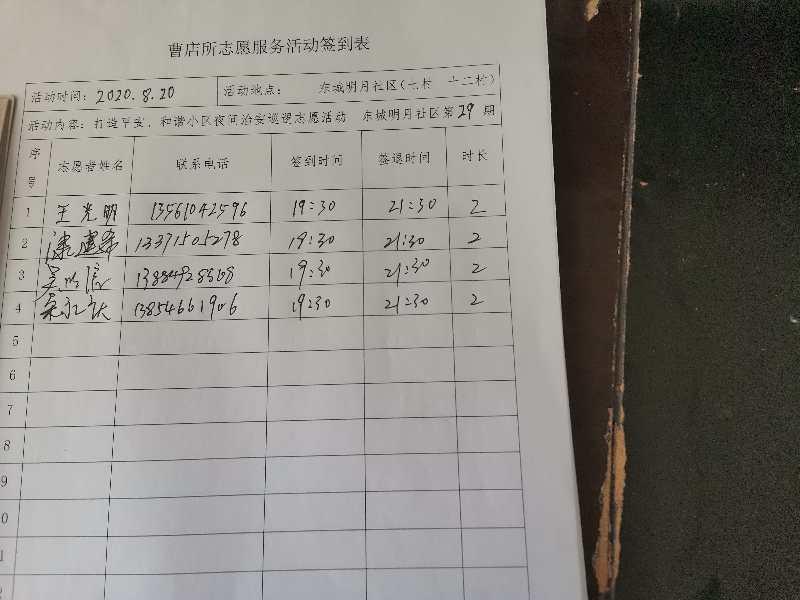 曹店所志愿服务活动签到表
活动时间: 2020.8.20 活动地点: 东城明月社区(七村 十二村)
活动内容: 打造平安、和谐小区夜间治安巡逻志愿活动 东城明月社区第29期
序号 志愿者姓名 联系电话 签到时间 签退时间 时长
1 王光明 13561042596 19:30 21:30 2
2 13371505278 19:30 21:30 2
3 19:30 21:30 2
4 13854661906 19:30 21:30 2
5
6
7
8
9
0
1
2